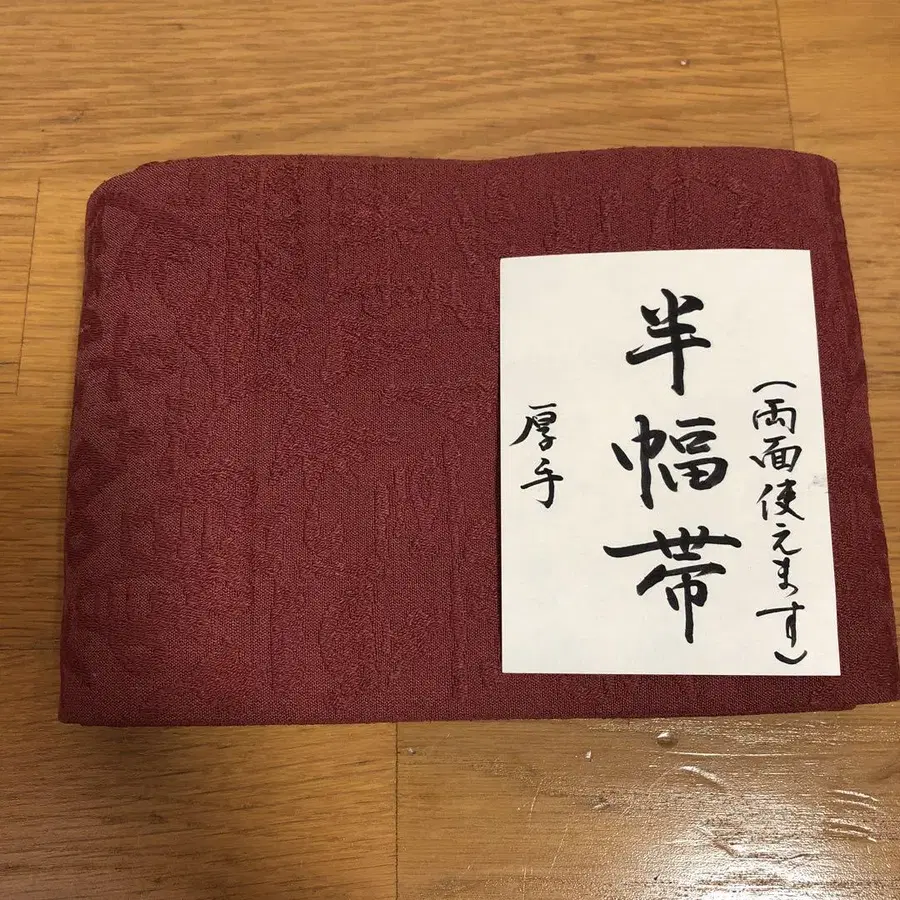 (両面使えます)
半幅帯
厚手